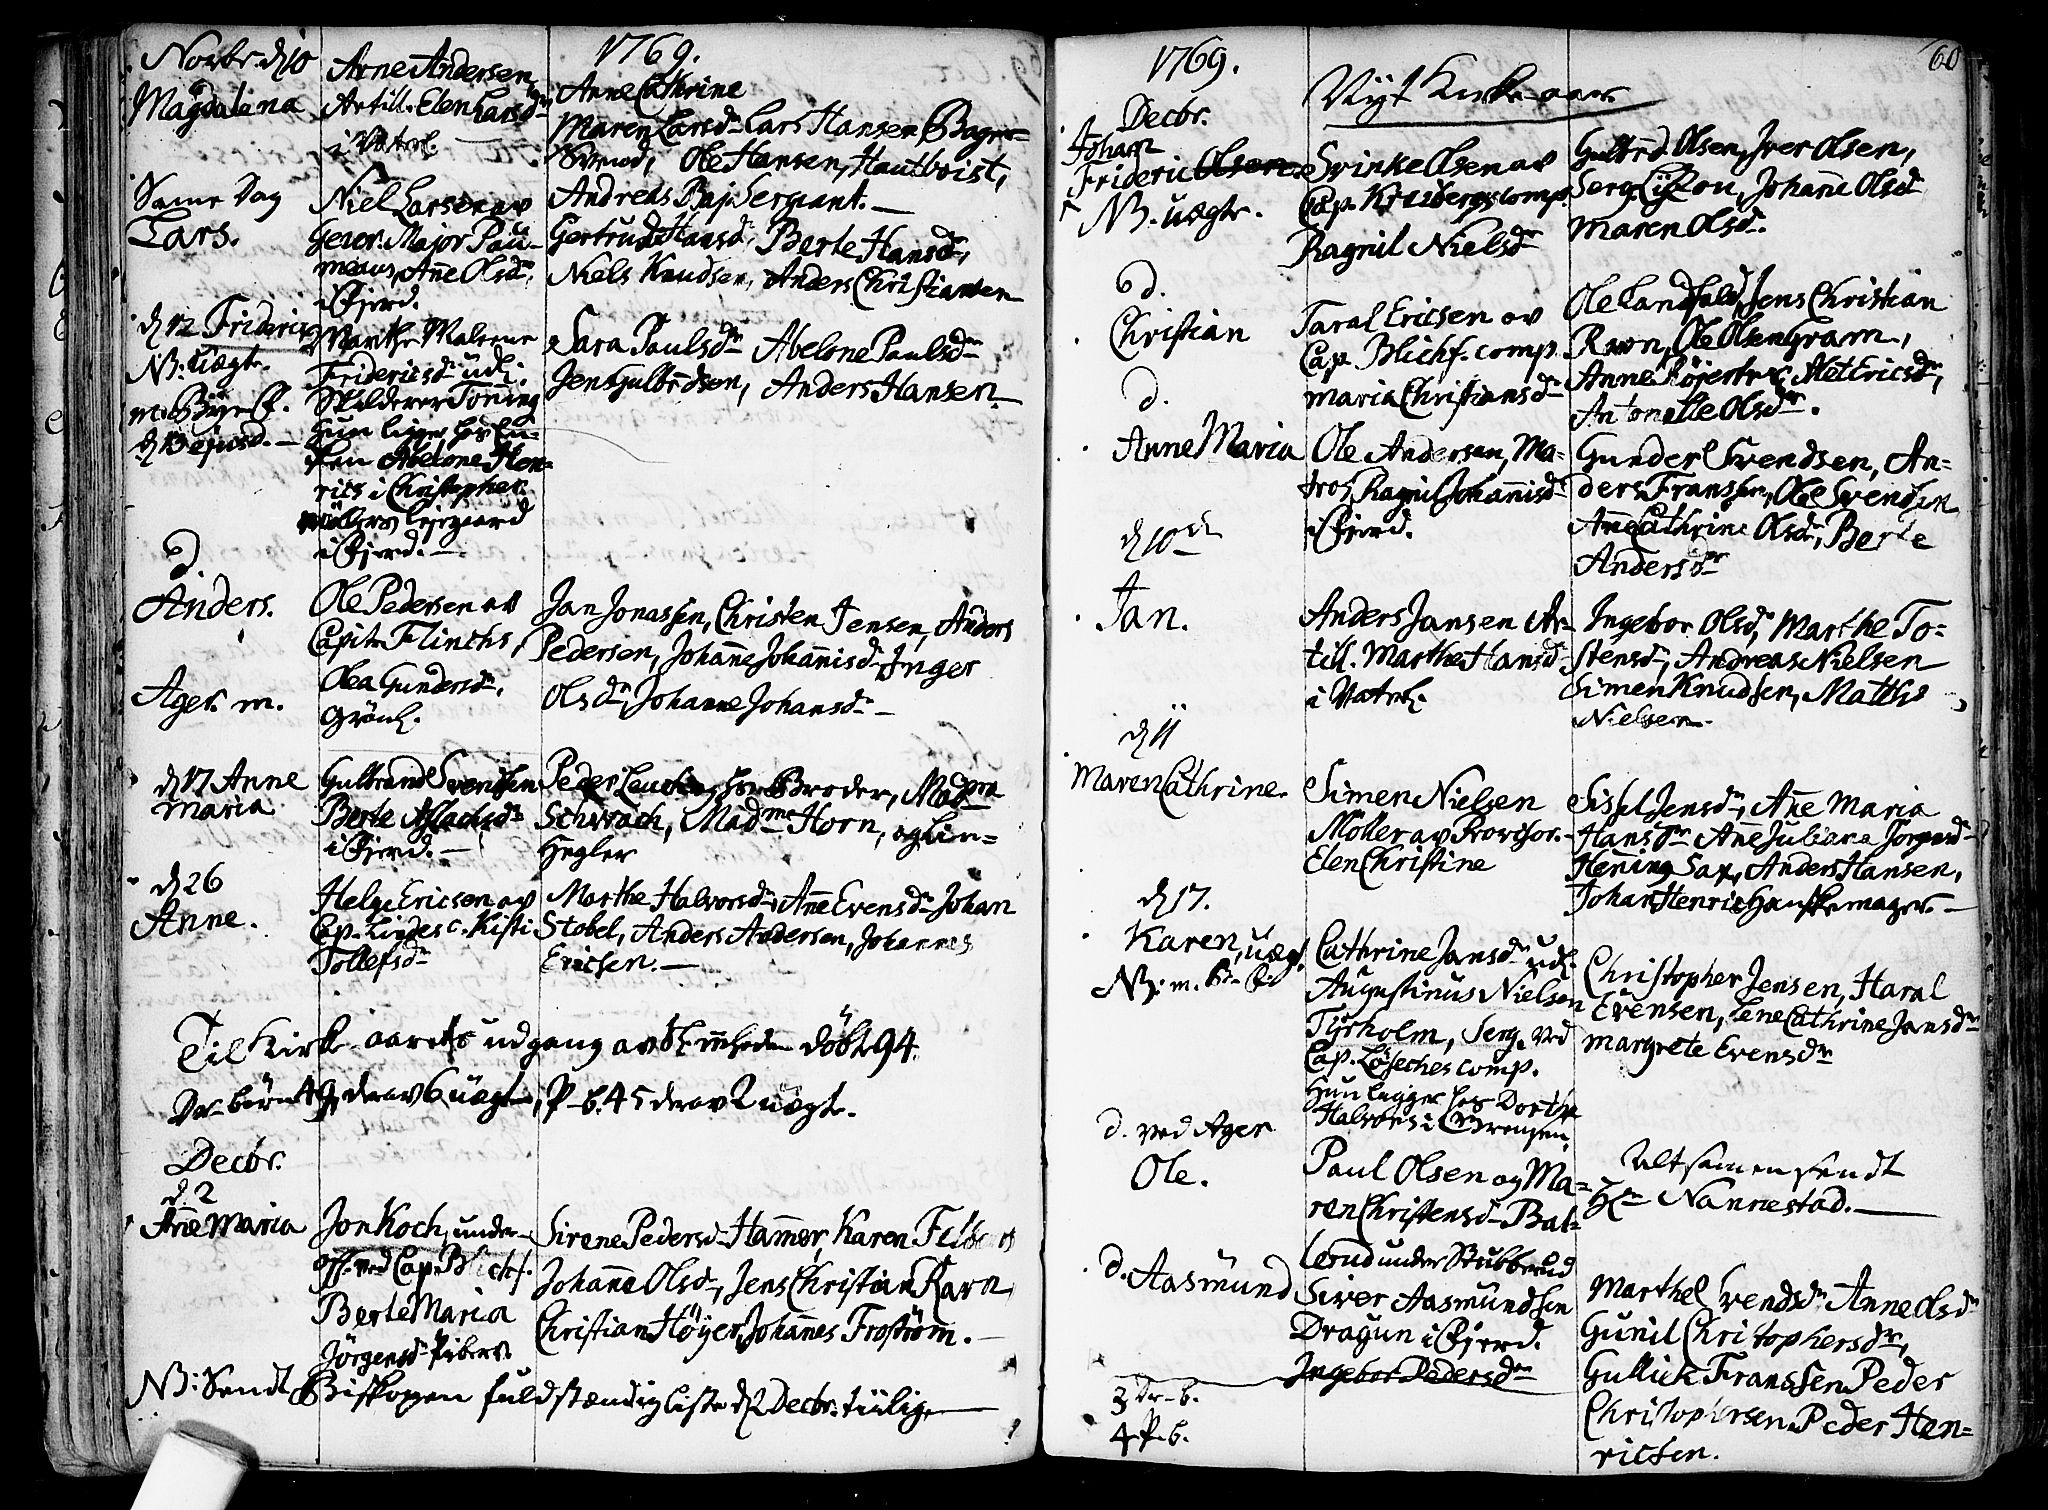 1769.
Novbr. d 10
Magdalena
Arne Andersen
Artill. Elen Larsdr
i Vaterl.
Anne Cathrine
Maren Larsdr Lars Hansen Bager-
Svend, Ole Hansen, Hautboist,
Andreas Bay Sergiant.
Same Dag
Lars.
Niel Larsen av
Gener. Major Pau-
mans, Anne Olsdr,
i Fjerd.
Gertrud Hansdr, Berte Hansdr,
Niels Knudsen, Anders Christiansen
d 12 Frideric
NB: uægte.
d 13 ejusd.
Marthe Malene
Fridericsdr udl:
Skilderer Tønning
Hun ligger hos En-
ken Abelone Hen-
rics i Christopher
i Fjerd.
Sara Paulsdr Abelone Paulsdr
Jens Gulbrdsen, Anders Hansen
d.
Anders.
Ager. m.
Ole Pedersen av
Capit. Flinchs,
Olea Gundersdr,
Grønl.
Jan Jonassen, Christen Jensen, Anders
Pedersen, Johanne Johannisdr Inger
Olsdr, Johanne Johansdr
d 17 Anne
Maria
Gulbrand Svendsen
Berte Aslachsdr
i Fjerd.
Broder, Mad
Schwach, Madme Horn, og
Hegler
d 26
Anne.
Helge Ericsen av
Cap. Lindes c. Kisti
Tollefsdr
Marthe Halvorsdr, Anne Evensdr Johan
Stobel, Anders Andersen, Johannes
Ericsen.
Til Kirke-aarets udgang av Menigheden døbt 94.
Dr-børn 49 derav 6 uægte, P-b. 45 derav 2 uægte.
Decbr.
d. 2
Anne Maria
Jon Koch, under-
off. ved Cap. Blichf.
Berte Maria
Jörgensdr Pibervi
Sirene Pedersdr Hammer, Karen
Johanne Olsdr, Jens Christian Ravn,
Christian Höyer, Johannes Frostrøm.
NB: Sendt Biskopen fuldstændig liste d 2 Decbr. tiilig
60
1769.
Nyt Kirke-aar
Decbr.
Johan
Frideric Olsen
NB. uægte.
Svinke Olsen av
Cap. Kreibergs comp.
Ragnil Nielsdr
Gulbrd Olsen, Iver Olsen,
Serg. Lützou, Johanne Olsdr
Maren Olsdr.
d.
Christian
Taral Ericsen av
Cap. Blichf. comp.
Maria Christiansdr
Ole Landfald, Jens Christian
Ravn, Ole Olsen Gram,
Anne Röyert Met Ericsdr,
Antonette Olsdr.
d.
Anne Maria
Ole Andersen, Ma-
tros, Ragnil Johannisdr
i Fjerd.
Gunder Svendsen, An-
ders Franssen, Ole Svendsen
Anne Cathrine Olsdr, Berte
Andersdr
d 10de
Jan.
Anders Jansen Ar-
till. Marthe Hansdr
i Vaterl.
Ingebor Olsdr, Marthe To-
stensdr, Andreas Nielsen
Simen Knudsen, Mathis
Nielsen.
d 11
Maren Cathrine.
Simen Nielsen
Møller av Provisor.
Elen Christine
Sissel Jensdr, Ane Maria
Hansdr Ane Juliana Jørgensdr
Henning Sax, Anders Hansen,
Johan Henric Hanskemager.
d 17.
Karen, uægt.
NB: m.
Cathrine Jansdr udl.
Augustinus Nielsen
Tyrholm, Serg. ved
Cap. Löseches comp.
Hun ligger hos Dorthe
Halvors i Grændsen.
Christopher Jensen, Haral
Evensen, Lene Cathrine Jansdr
Margrete Evensdr
d. ved Ager
Ole.
Paul Olsen og Ma-
ren Christensdr Bal-
lerud under Stubberud
Altsamen sendt
Hr Nannestad.
d. Aasmund
Siver Aasmundsen
Dragun i Fjerd.
Ingebor Pedersdr
Marthe Svendsdr Anne Olsdr
Gunil Christophersdr,
Gullick Franssen Peder
Christophersen, Peder Hen-
ricsen.
3 Dr-b.
4 P-b.